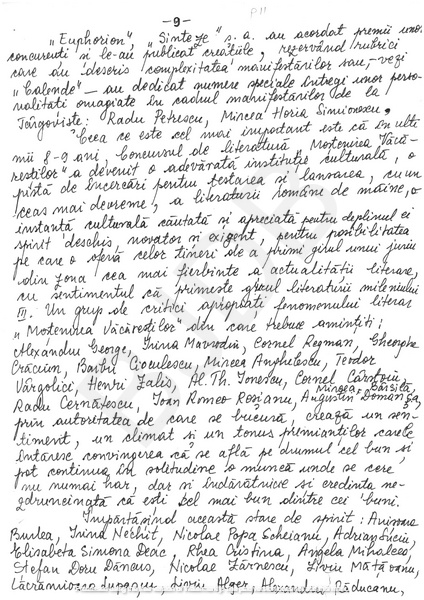 -9-
"Euphorion", "Sinteze" s.a. au acordat premii unor
concurenti si le-au publicat creatiile, rezervând rubrici
care au descris complexitatea manifestărilor sau, - vezi
"Calende" - au dedicat numere speciale întregi unor perso-
nalitati omagiate în cadrul manifestărilor de la
Târgoviste: Radu Petrescu, Mircea Horia Simionescu.
Ceea ce este cel mai important este că în ulti
mii 8-9 ani, Concursul de literatură "Mostenirea Văcă-
restilor" a devenit o adevărată institutie culturală, o
pistă de încercări pentru testarea si lansarea, cu un
ceas mai devreme, a literaturii române de maine, o
instantă culturală căutată si apreciată pentru deplinul ei
spirit deschis, novator si exigent, pentru posibilitatea
pe care o oferă celor tineri de a primi girul unui juriu
din zona cea mai fierbinte a actualitătii literare,
cu sentimentul că primeste girul literaturii mileniului
III. Un grup de critici apropiati fenomenului literar
"Mostenirea Văcărestilor" din care trebue amintiti:
Alexandru George, Irina Mavrodin, Cornel Regman, Gheorghe
Crăciun, Barbu Cioculescu, Mircea Anghelescu, Teodor
Vârgolici, Henri Zalis, Al. Th. Ionescu, Cornel Cârstoiu,
Mircea Bârsilă,
Radu Cernătescu, Ioan Romeo Rosianu, Augustin Doman s.a,
prin autoritatea de care se bucură, crează un sen-
timent, un climat si un tonus premiantilor carele
întăresc convingerea că se află pe drumul cel bun si
pot continua în solitudine o muncă unde se cere
nu numai har, dar si îndărătnicie si credinta ne-
zdruncinată că esti cel mai bun dintre cei buni.
Împărtăsind această stare de spirit: Anisoara
Burlea, Irina Nechit, Nicolae Popa Scheianu, Adrian Suciu,
Elisabeta Simona Deac, Rhea Cristina, Angela Mihalcea,
Stefan Doru Dăncus, Nicolae Zărnescu, Liviu Mătăoanu,
Lăcrămioara Lupascu, Liviu Alger, Alexandru Răducanu,